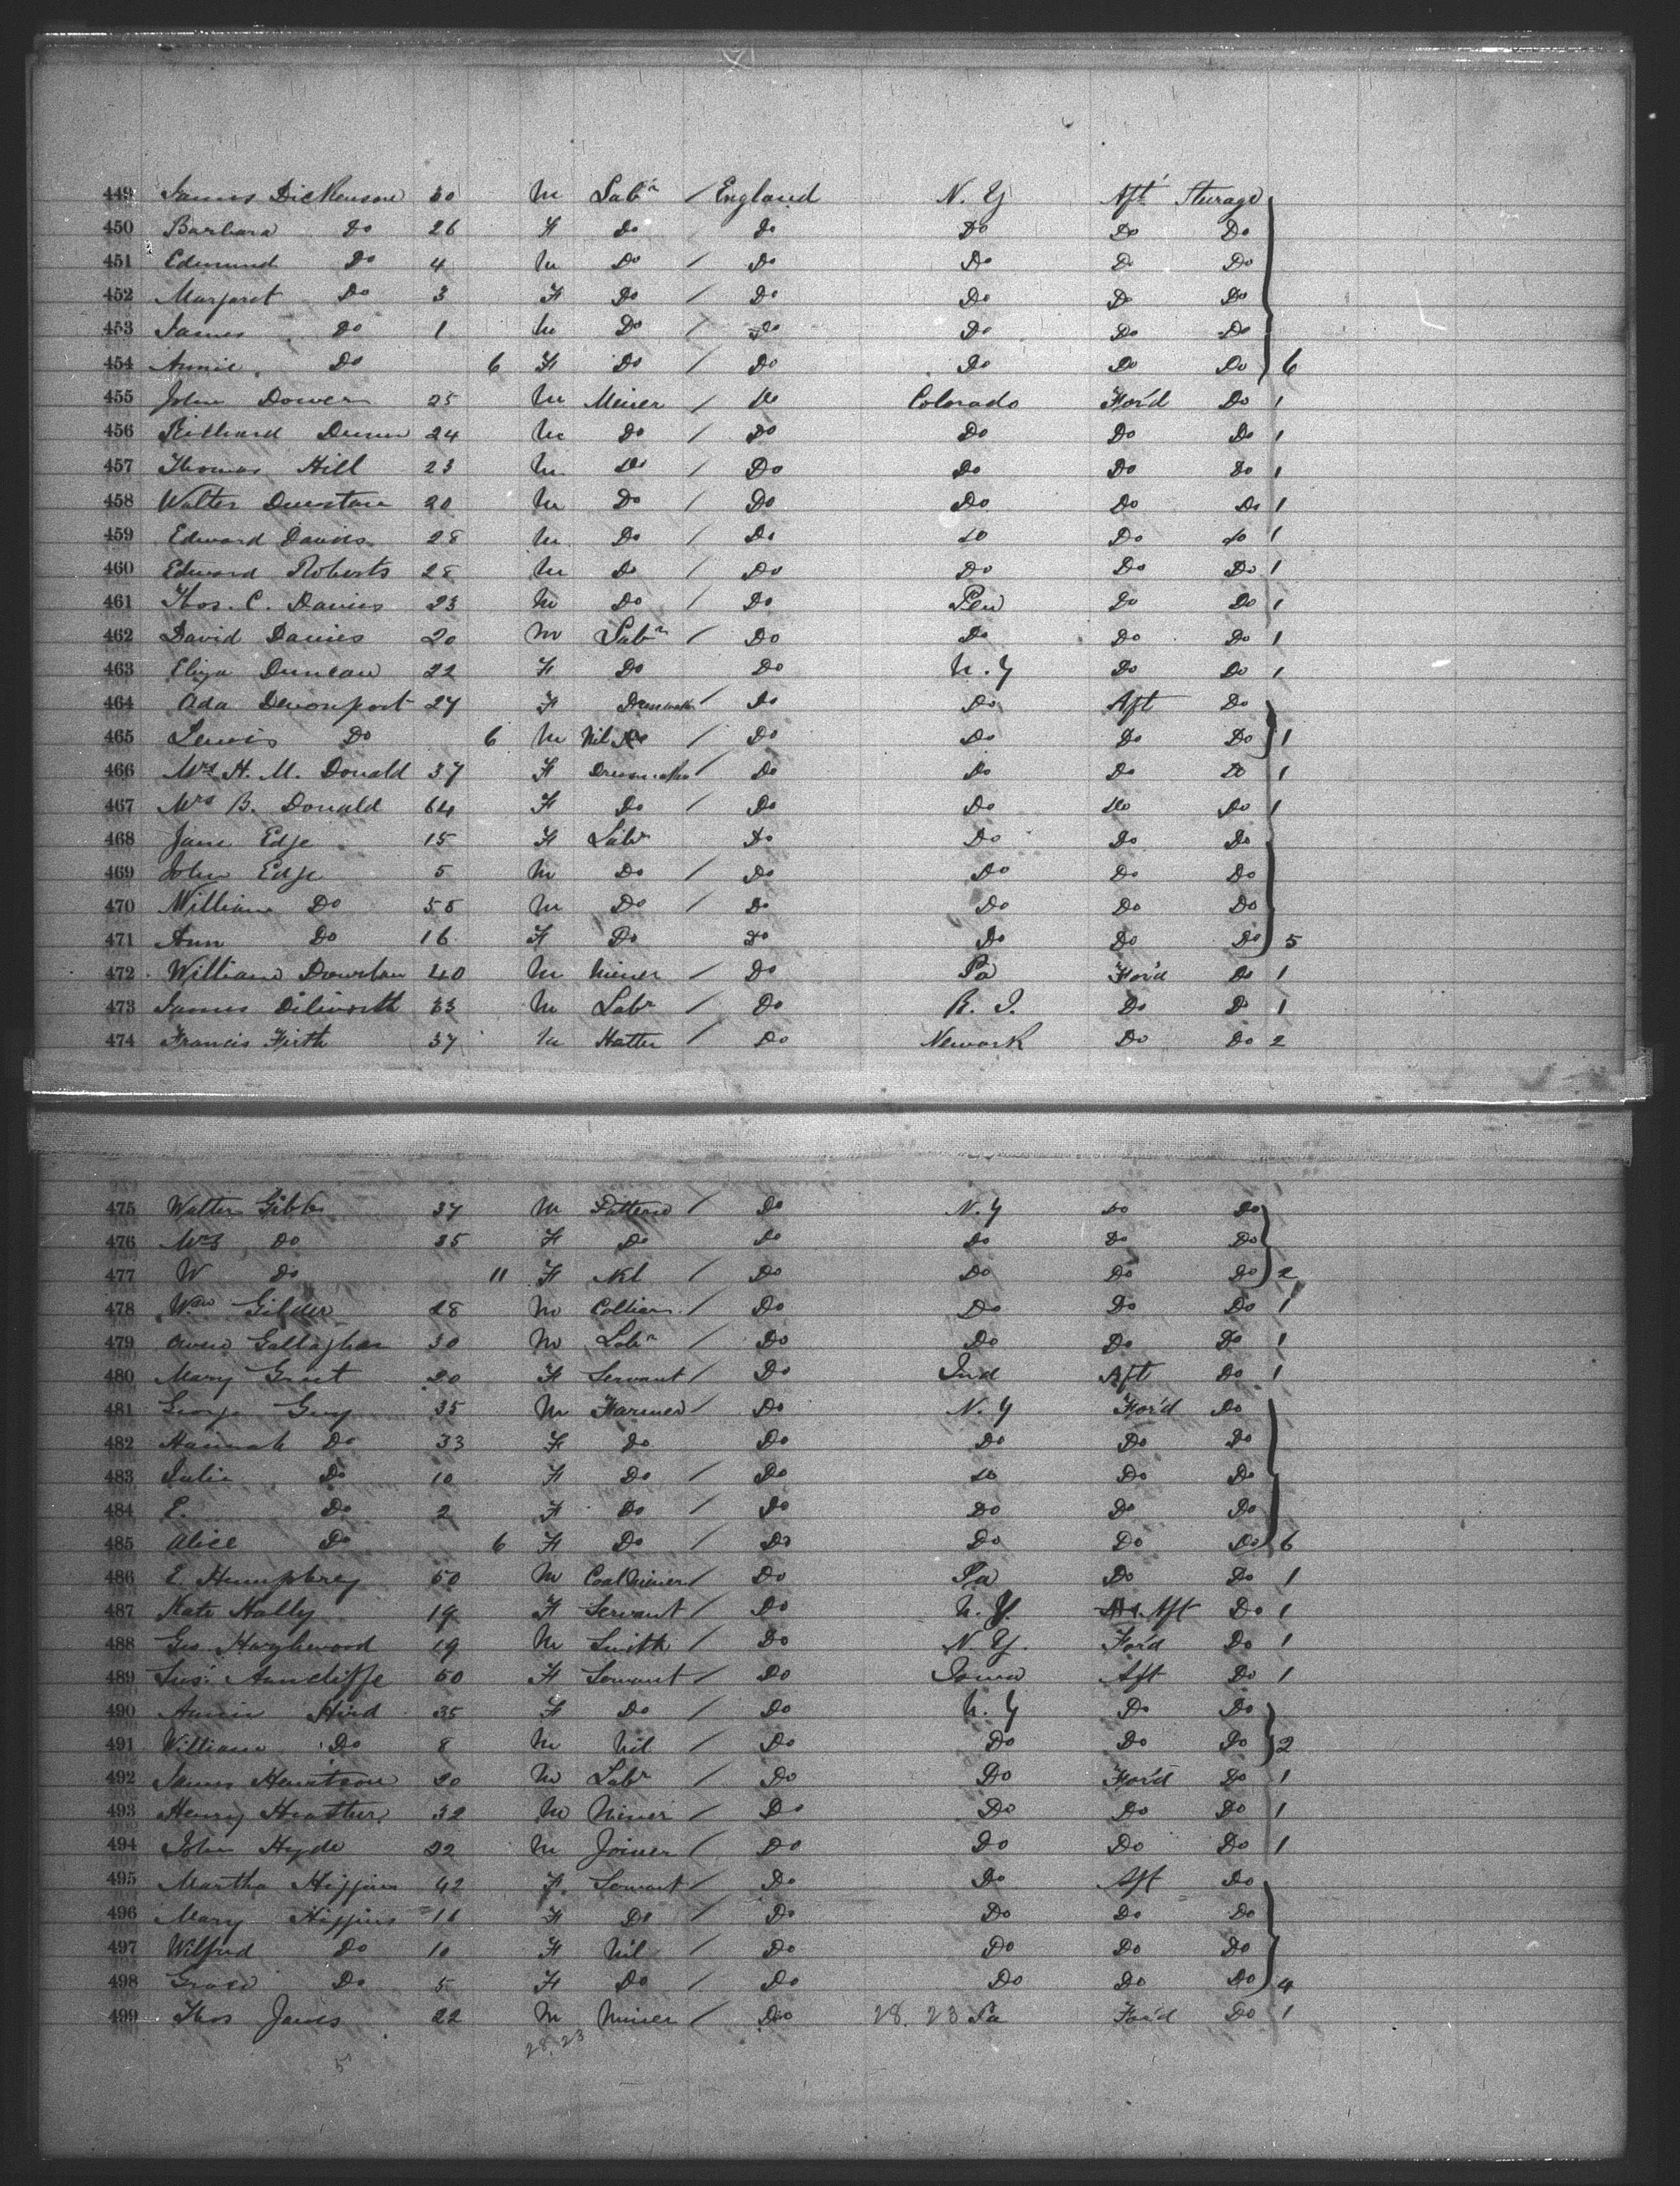 449 James Dickenson 30 M Labr / England N. Y Aft Sturage
450 Barbara Do 26 F Do Do Do Do Do
451 Edmund Do 4 M Do / Do Do Do Do
452 Margaret Do 3 F Do / Do Do Do Do
453 James Do 1 M Do / Do Do Do Do
454 Annie Do 6 F Do / Do Do Do Do 6
455 John Dower 25 M Miner / Do Colorado For'd Do 1
456 Richard Dunn 24 M Do / Do Do Do Do 1
457 Thomas Hill 23 M Do / Do Do Do Do 1
458 Walter Dunstan 20 M Do / Do Do Do Do 1
459 Edward Davies 28 M Do / Do Do Do Do 1
460 Edward Roberts 28 M Do / Do Do Do Do 1
461 Thos. C. Davies 23 M Do / Do Pen Do Do 1
462 David Davies 20 M Labr / Do Do Do Do 1
463 Eliza Duncan 22 F Do Do N. Y Do Do 1
464 Ada Devonport 27 F / Do Do Aft Do
465 Lewis Do 6 M Nil / Do Do Do Do 1
466 Mrs H. M. Donald 37 F Dressmaker / Do Do Do Do 1
467 Mrs B. Donald 64 F Do / Do Do Do Do 1
468 Jane Edge 15 F Labr Do Do Do Do
469 John Edge 5 M Do / Do Do Do Do
470 William Do M Do / Do Do Do Do
471 Ann Do 16 F Do Do Do Do Do 5
472 William 40 M Miner / Do Pa For'd Do 1
473 James Dilworth 33 M Labr / Do R. I. Do Do 1
474 Francis Firth 37 M Hatter / Do Newark Do Do 2
475 Walter Gibbs 37 M / Do N. Y Do Do
476 Mrs Do 35 F Do Do Do Do Do
477 W Do 11 F Nil / Do Do Do Do 2
478 Wm Gilder 28 M Collier / Do Do Do Do 1
479 Owen Gallaghan 30 M Labr / Do Do Do Do 1
480 Mary 20 F Servant / Do Ind Aft Do 1
481 George Guy 35 M Farmer / Do N. Y For'd Do
482 Hannah Do 33 F Do Do Do Do Do
483 Julia Do 10 F Do / Do Do Do Do
484 E. Do 2 F Do / Do Do Do Do
485 Alice Do 6 F Do / Do Do Do Do 6
486 E. Humphrey 50 M Coal Miner / Do Pa Do Do 1
487 Kate Hally 19 F Servant / Do N. Y. Aft Do 1
488 Geo. 19 M Smith / Do N. Y. For'd Do 1
489 50 F Servant / Do Iowa Aft Do 1
490 Annie Hird 35 F Do / Do N. Y Do Do
491 William Do 8 M Nil / Do Do Do Do 2
492 James 20 M Labr / Do Do For'd Do 1
493 Henry Heather 32 M Miner / Do Do Do Do 1
494 John Hyde 22 M Joiner / Do Do Do Do 1
495 Martha Higgins 42 F. Servant / Do Do Aft Do
496 Mary Higgins 16 F Do / Do Do Do Do
497 Wilfred Do 10 F Nil / Do Do Do Do
498 Grace Do 5 F Do / Do Do Do Do 4
499 Thos James 22 M Miner / Do 28. 23 Pa For'd Do 1
28. 23
5